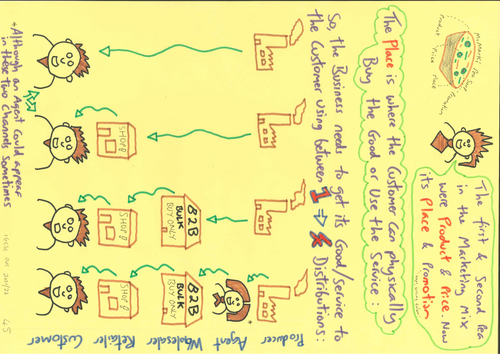 The first & Second Pea
in the Marketing Mix
were Product & Price. Now
its Place & Promotion
The Place is where the Customer can physically
Buy the Good or Use the Service:
So, the Business needs to get its Good/service to
the Customer using between 1 4 Distributions:
Producer
Agent
Wholesaler
Retailer
Customer
B2B
BULK
BUY ONLY
B2B
BULK
BUY ONLY
SHOP
SHOP
SHOP
+Although an Agent Could appear
in these two Channels Sometimes
45